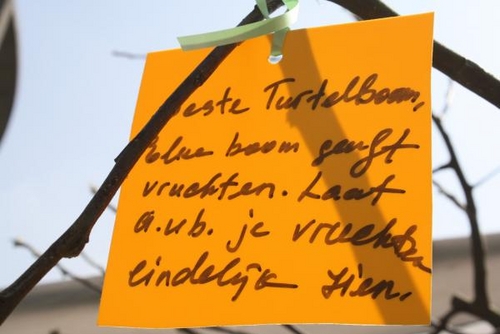 Beste Turtelboom,
Elke boom geeft
vruchten. Laat
a.u.b. je vruchten
eindelijk zien.